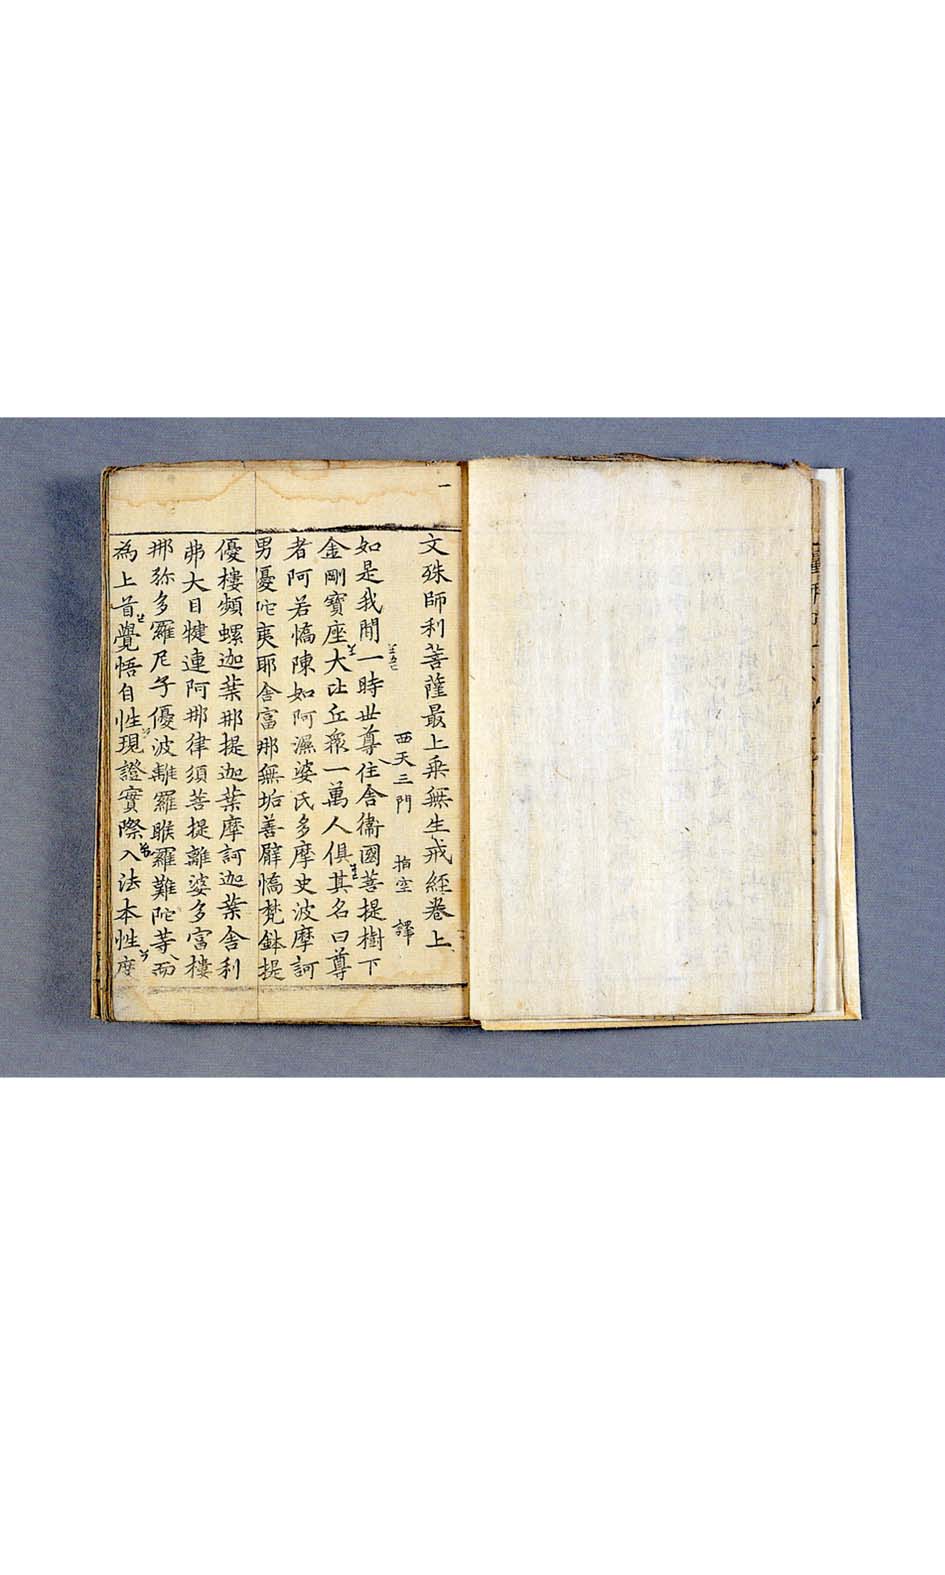 一
文殊師利菩薩最上乗無生戒経卷上
西天三門 指空 譯
如是我聞一時世尊住舍衛國菩提樹下
金剛寶座大比丘衆一萬人俱其名曰尊
者阿若憍陳如阿濕婆氏多摩史波摩訶
男優陀夷耶舍富那無垢善臂憍梵鉢提
優樓頻螺迦葉那提迦葉摩訶迦葉舍利
弗大目犍連阿那律須菩提離婆多富樓
那弥多羅尼子優波離羅睺羅難陀等而
為上首覺悟自性現證實際入法本性度